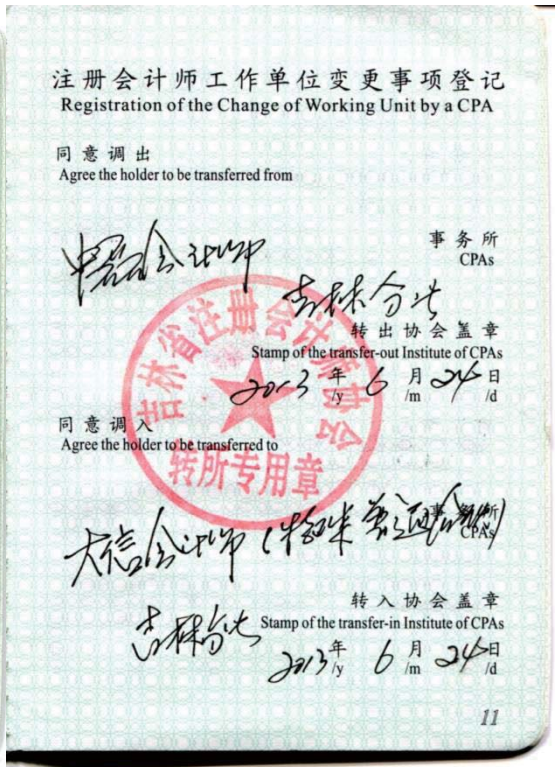 注册会计师工作单位变更事项登记
Registration of the Change of Working Unit by a CPA
同意调出
Agree the holder to be transferred from
会计师
事务所
CPAs
吉林分所
转出协会盖章
Stamp of the transfer-out Institute of CPAs
2013 年 6 月 24 日
/y /m /d
吉林省注册会计师协会
转所专用章
同意调入
Agree the holder to be transferred to
大信会计师(特殊普通合伙)
事务所
CPAs
转入协会盖章
吉林分所 Stamp of the transfer-in Institute of CPAs
2013 年 6 月 24 日
/y /m /d
11